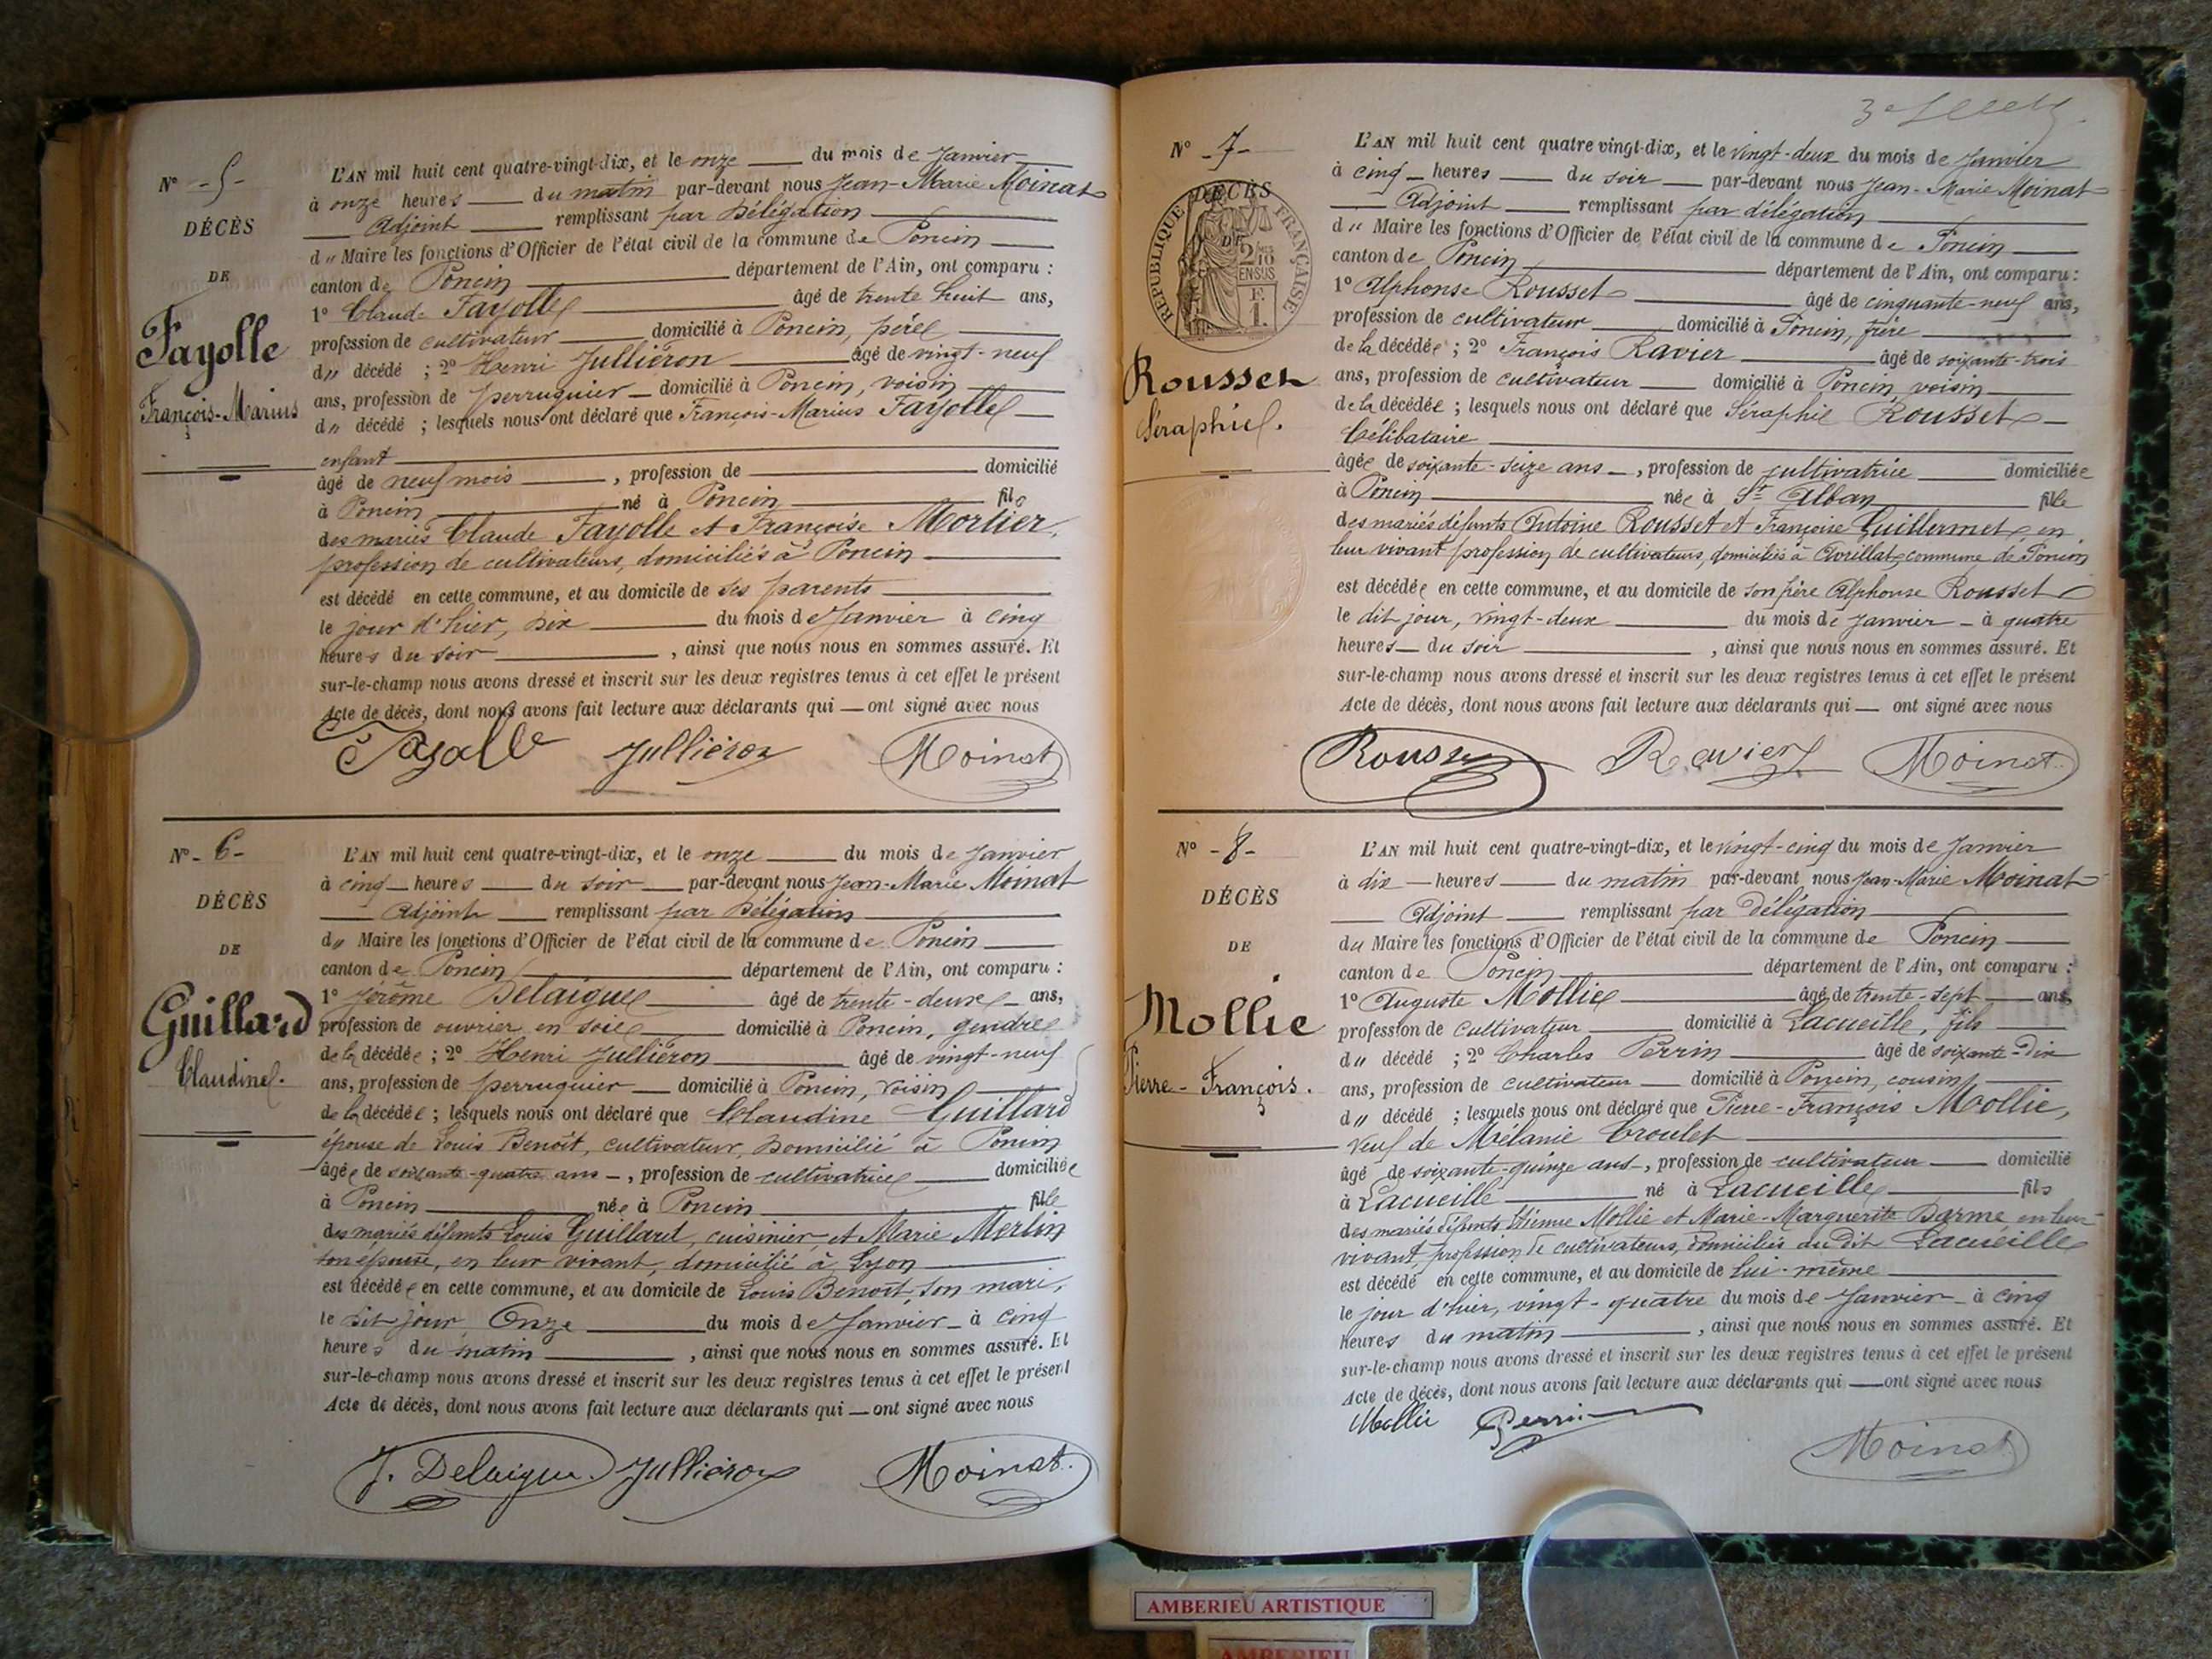 N° - 5 -
DÉCÈS
DE
Fayolle
François-Marius
L'AN mil huit cent quatre-vingt-dix, et le onze du mois de Janvier
à onze heures du matin par-devant nous Jean-Marie Moinat
Adjoint remplissant par Délégation
d" Maire les fonctions d'Officier de l'état civil de la commune de Poncin
canton de Poncin département de l'Ain, ont comparu :
1° Claude Fayolle âgé de trente huit ans,
profession de cultivateur domicilié à Poncin, père
d" décédé ; 2° Henri Julliéron âgé de vingt-neuf
ans, profession de perruquier domicilié à Poncin, voisin
d" décédé ; lesquels nous ont déclaré que François-Marius Fayolle
enfant
âgé de neuf mois , profession de domicilié
à Poncin né à Poncin fils
des mariés Claude Fayolle et Françoise Mortier,
profession de cultivateurs, domiciliés à Poncin
est décédé en cette commune, et au domicile de ses parents
le jour d'hier, dix du mois de Janvier à cinq
heures du soir , ainsi que nous nous en sommes assuré. Et
sur-le-champ nous avons dressé et inscrit sur les deux registres tenus à cet effet le présent
Acte de décès, dont nous avons fait lecture aux déclarants qui — ont signé avec nous
Fayolle Julliéron Moinat
N° - 6 -
DÉCÈS
DE
Guillard
Claudine.
L'AN mil huit cent quatre-vingt-dix, et le onze du mois de Janvier
à cinq heures du soir par-devant nous Jean-Marie Moinat
Adjoint remplissant par Délégation
d" Maire les fonctions d'Officier de l'état civil de la commune de Poncin
canton de Poncin département de l'Ain, ont comparu :
1° Jérôme Delaigue âgé de trente-deux ans,
profession de ouvrier en soie domicilié à Poncin, gendre
de la décédée ; 2° Henri Julliéron âgé de vingt-neuf
ans, profession de perruquier domicilié à Poncin, voisin
de la décédée ; lesquels nous ont déclaré que Claudine Guillard
épouse de Louis Benoît, cultivateur, domicilié à Poncin
âgée de soixante-quatre ans , profession de cultivatrice domiciliée
à Poncin née à Poncin fille
des mariés défunts Louis Guillard, cuisinier, et Marie Merlin
son épouse, en leur vivant, domicilié à Lyon
est décédée en cette commune, et au domicile de Louis Benoît, son mari,
le dit jour, Onze du mois de Janvier à cinq
heures du matin , ainsi que nous nous en sommes assuré. Et
sur-le-champ nous avons dressé et inscrit sur les deux registres tenus à cet effet le présent
Acte de décès, dont nous avons fait lecture aux déclarants qui — ont signé avec nous
J. Delaigue Julliéron Moinat
N° - 7 -
DÉCÈS
DE
RÉPUBLIQUE FRANÇAISE
2/10
EN SUS
F.
1.
Rousset
Séraphie.
L'AN mil huit cent quatre vingt-dix, et le vingt-deux du mois de Janvier
à cinq heures du soir par-devant nous Jean-Marie Moinat
Adjoint remplissant par délégation
d" Maire les fonctions d'Officier de l'état civil de la commune de Poncin
canton de Poncin département de l'Ain, ont comparu :
1° Alphonse Rousset âgé de cinquante-neuf ans,
profession de cultivateur domicilié à Poncin, frère
de la décédée ; 2° François Ravier âgé de soixante-trois
ans, profession de cultivateur domicilié à Poncin, voisin
de la décédée ; lesquels nous ont déclaré que Séraphie Rousset
Célibataire
âgée de soixante-seize ans , profession de cultivatrice domiciliée
à Poncin née à St Alban fille
des mariés défunts Antoine Rousset et Françoise Guillermet, en
leur vivant profession de cultivateurs, domiciliés à Avrillat, commune de Poncin
est décédée en cette commune, et au domicile de son frère Alphonse Rousset
le dit jour, vingt-deux du mois de Janvier à quatre
heures du soir , ainsi que nous nous en sommes assuré. Et
sur-le-champ nous avons dressé et inscrit sur les deux registres tenus à cet effet le présent
Acte de décès, dont nous avons fait lecture aux déclarants qui — ont signé avec nous
Rousset Ravier Moinat
N° - 8 -
DÉCÈS
DE
Mollie
Pierre-François.
L'AN mil huit cent quatre-vingt-dix, et le vingt-cinq du mois de Janvier
à dix heures du matin par-devant nous Jean-Marie Moinat
Adjoint remplissant par Délégation
du Maire les fonctions d'Officier de l'état civil de la commune de Poncin
canton de Poncin département de l'Ain, ont comparu :
1° Auguste Mollie âgé de trente-sept ans,
profession de cultivateur domicilié à Lacueille, fils
d" décédé ; 2° Charles Perrin âgé de soixante-dix
ans, profession de cultivateur domicilié à Poncin, cousin
d" décédé ; lesquels nous ont déclaré que Pierre-François Mollie,
veuf de Mélanie Croulet
âgé de soixante-quinze ans , profession de cultivateur domicilié
à Lacueille né à Lacueille fils
des mariés défunts Etienne Mollie et Marie-Marguerite Darme, en leur
vivant, profession de cultivateurs, domiciliés au dit Lacueille
est décédé en cette commune, et au domicile de lui-même
le jour d'hier, vingt-quatre du mois de Janvier à cinq
heures du matin , ainsi que nous nous en sommes assuré. Et
sur-le-champ nous avons dressé et inscrit sur les deux registres tenus à cet effet le présent
Acte de décès, dont nous avons fait lecture aux déclarants qui — ont signé avec nous
Mollie Perrin Moinat
AMBERIEU ARTISTIQUE
AMBERIEU